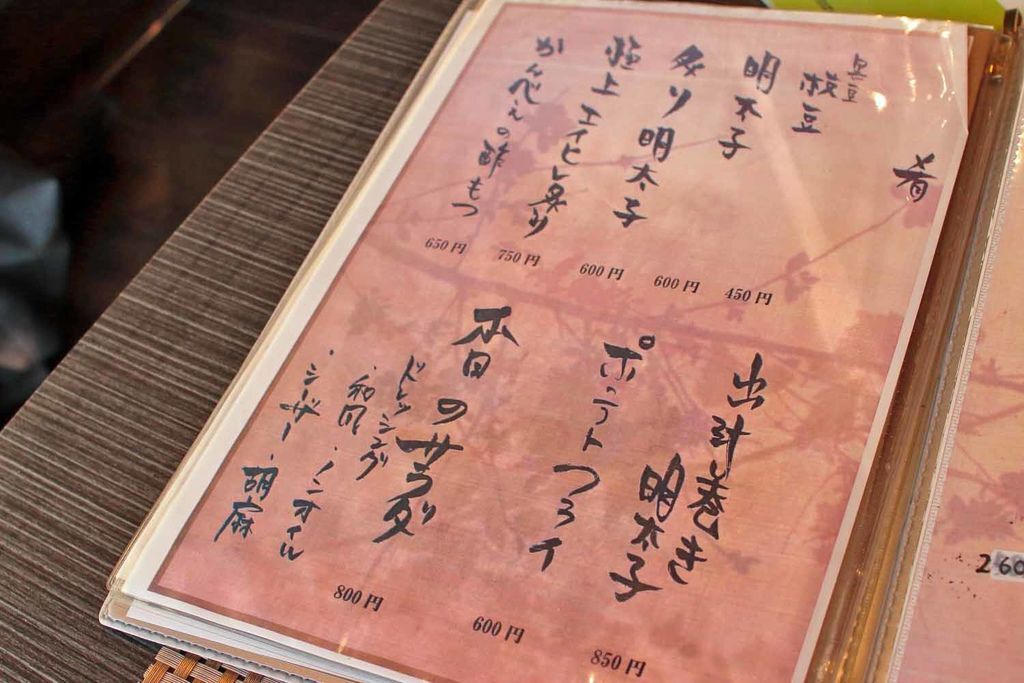 肴
黒豆
枝豆
450円
明太子
600円
炙り明太子
600円
極上エイヒレ炙り
750円
かんべえの酢もつ
650円
出汁巻き
明太子
850円
ポテトフライ
600円
本日のサラダ
ドレッシング
・和風・ノンオイル
・シーザー・胡麻
800円
260